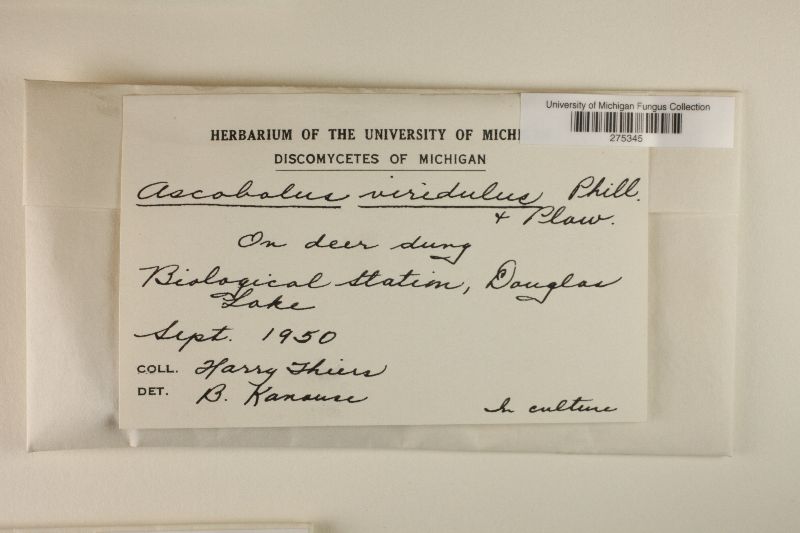 University of Michigan Fungus Collection
275345
HERBARIUM OF THE UNIVERSITY OF MICHI
DISCOMYCETES OF MICHIGAN
Ascobolus viridulus Phill.
& Plow.
On deer dung
Biological Station, Douglas
Lake
Sept. 1950
COLL. Harry Thiers
DET. B. Kanouse
In culture